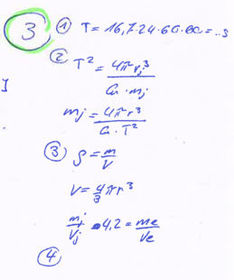 3 ① T = 16,7·24·60·60 = ..s
② T² = 4π²r³ / G·mj
mj = 4π²r³ / G·T²
③ ρ = m/V
V = 4/3 πr³
mj/Vj · 4,2 = me/Ve
④